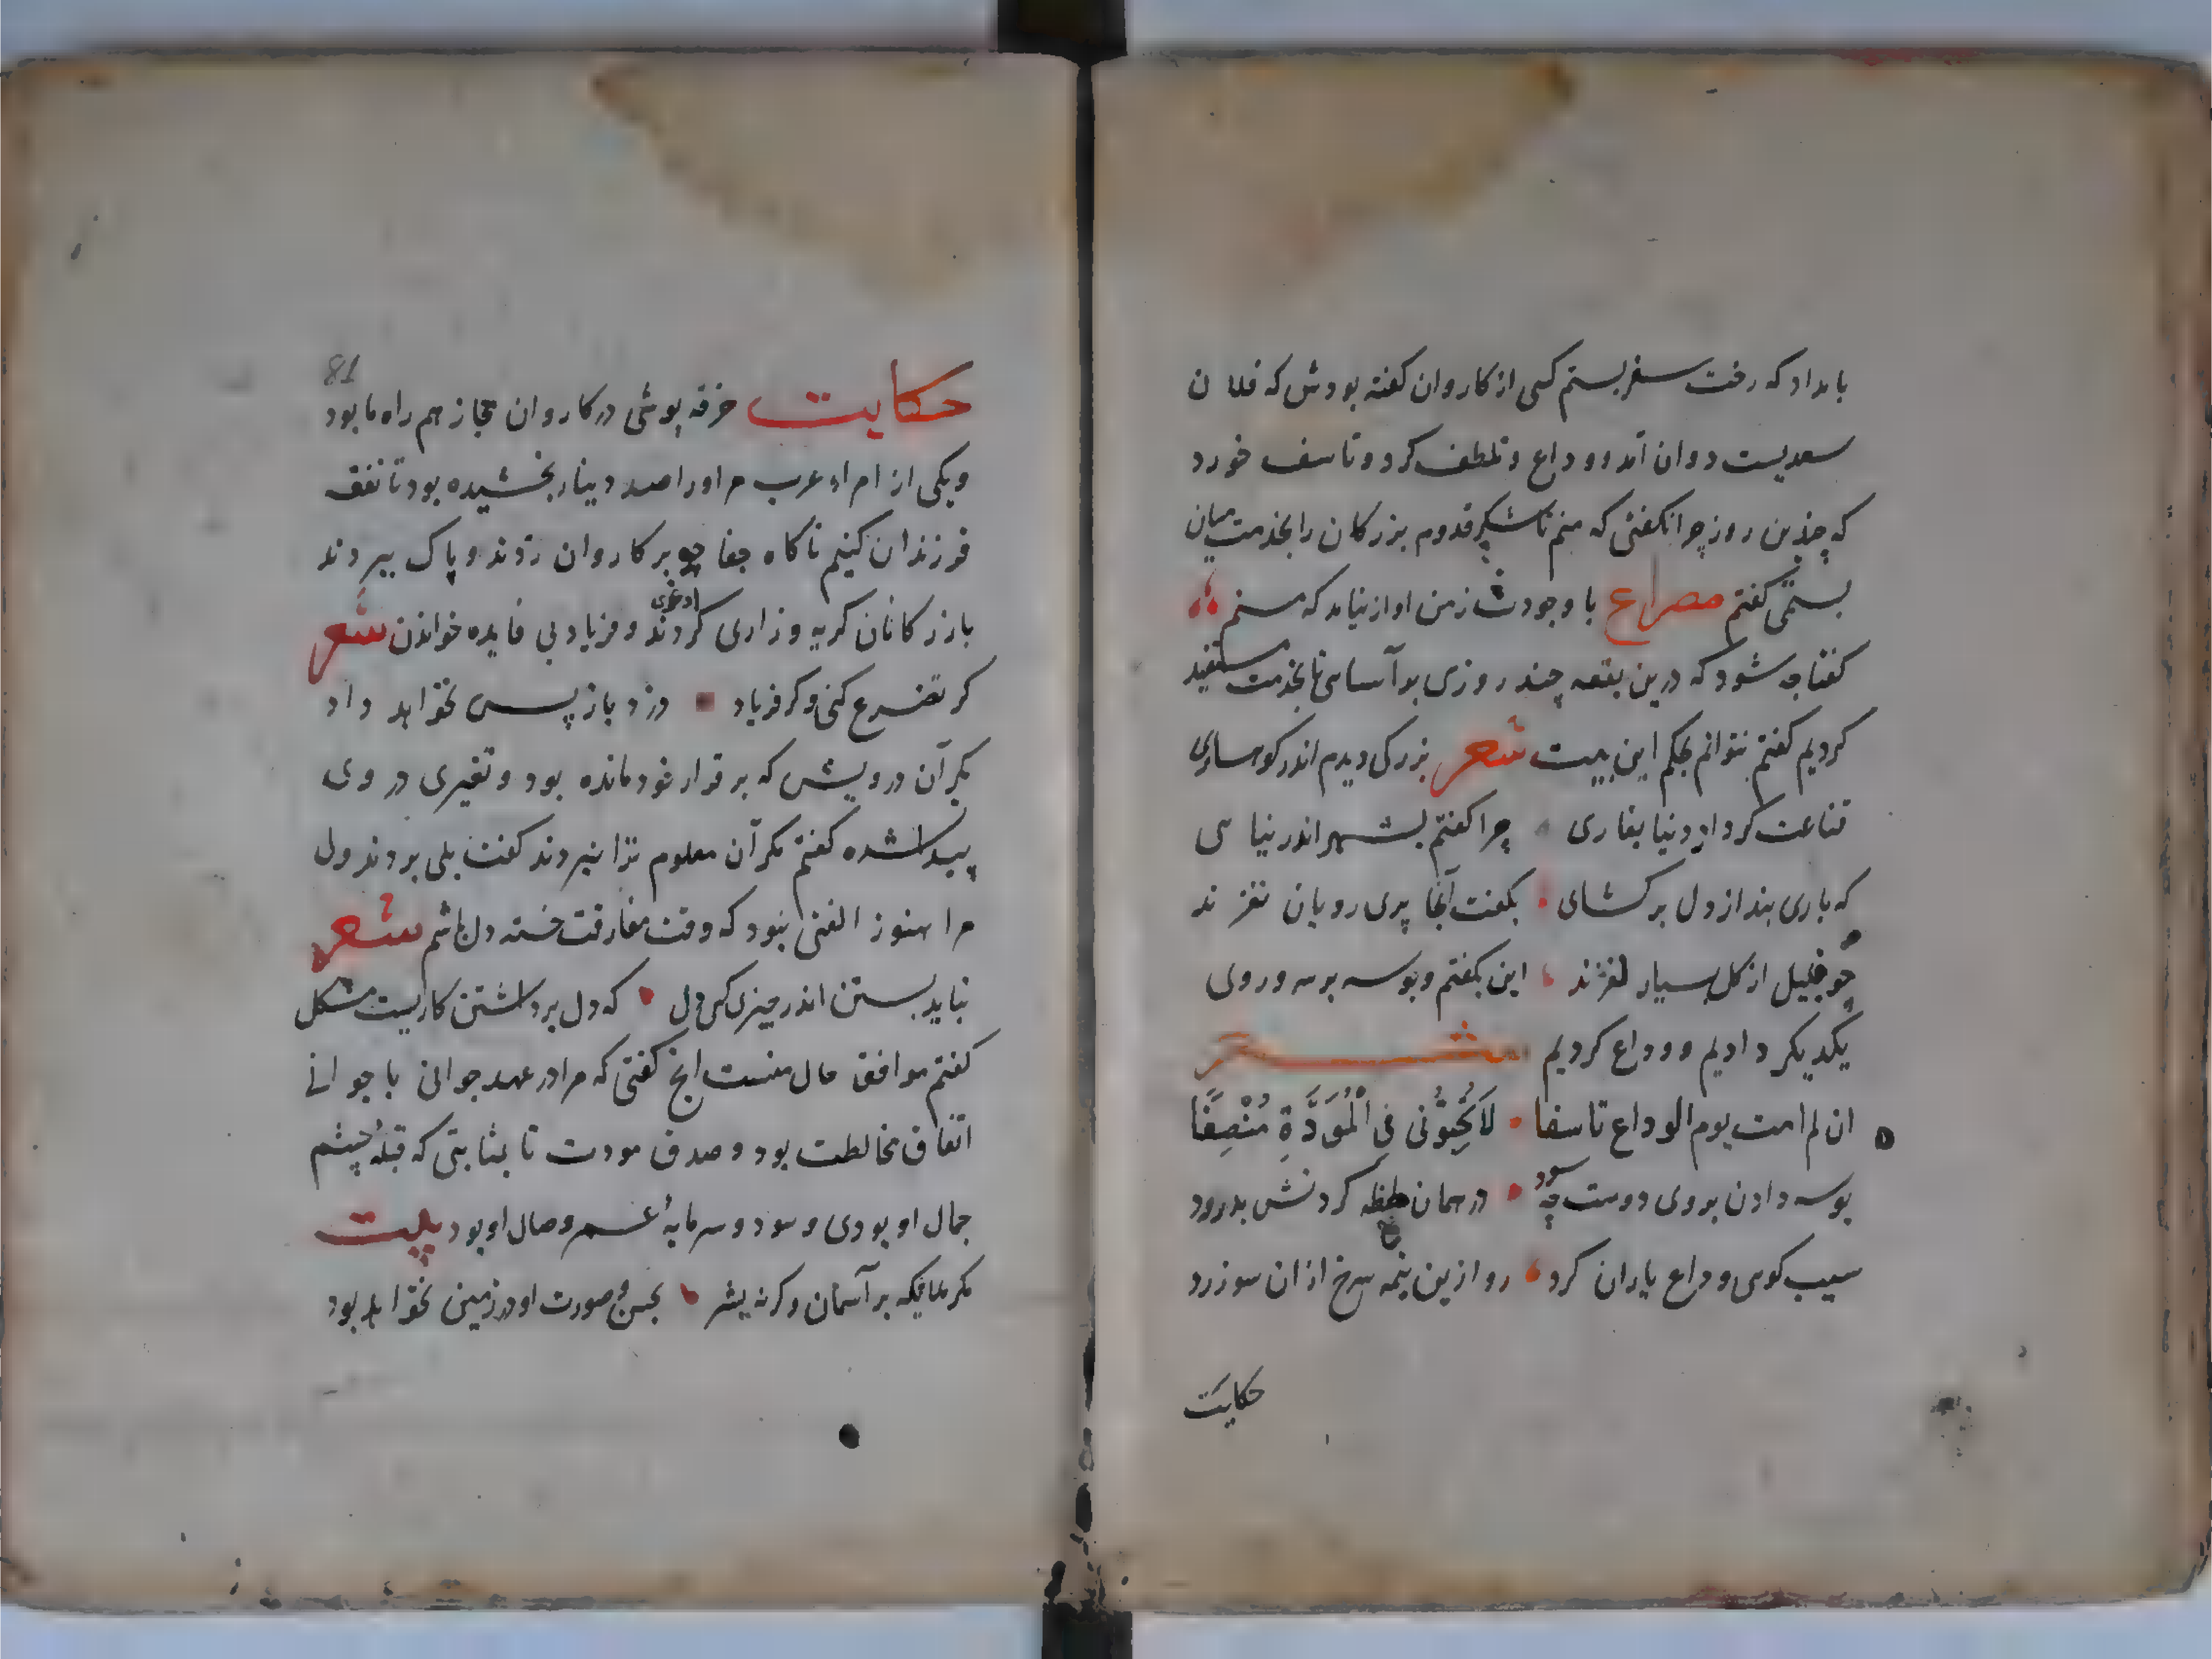 بامداد که رخت سفر بستم کسی از کاروان کفته بودش که فلان
سعدیست دوان آمد و وداع و تلطف کرد و تاسف خورد
که چندین روز چرا نکفتی که منم تا شکر قدوم بزرکان را بخدمت میان
بستمی کفتم مصراع با وجودت ز من آواز نیامد که منم
کفتا چه شود که درین بقعه چند روزی بر آسای تا بخدمت مستفید
کردیم کفتم نتوانم بحکم این بیت شعر بزرکی دیدم اندر کوهساری
قناعت کرد از دنیا بغاری چرا کفتم بشهر اندر نیایی
که باری بند از دل برکشای بکفت آنجا پری رویان نغزند
چو کل بسیار لغزند این بکفتم و بوسه بر سر و روی
یکدیکر دادیم و وداع کردیم شعر
ان لم امت یوم الوداع تاسفا لا تَحْسَبُونی فِی الْمُوَدَّةِ مُنْصِفًا
بوسه دادن بروی دوست چه سود در همان لحظه کردنش بدرود
سیب کوی وداع یاران کرد رو ازین نیمه سرخ ازان سو زرد
حکایت
81
حکایت خرقه پوشی در کاروان حجاز هم راه ما بود
و یکی از امراء عرب مر او را صد دینار بخشیده بود تا نفقه
فرزندان کنیم ناکاه بر کاروان زدند و پاک ببردند
بازرکانان کریه و زاری کردند و فریاد بی فایده خواندن شعر
کر تضرع کنی و کر فریاد دزد باز پس نخواهد داد
مکر آن درویش که بر قرار خود مانده بود و تغیری در وی
پیدا نشده کفتم مکر آن معلوم ترا نبردند کفت بلی بردند ول
مرا هنوز الفتی نبود که وقت مفارقت خسته دل باشم شعر
نباید بستن اندر چیز کس دل که دل برداشتن کاریست مشکل
کفتم موافق حال منست انچ کفتی که مرا در عهد جوانی با جوانی
اتفاق مخالطت بود و صدق مودت تا بمثابتی که قبله چشم
جمال او بودی و سود و سرمایه عمر وصال او بود بیت
مکر ملایکه بر آسمان و کر نه بشر بحسن صورت او در زمین نخواهد بود